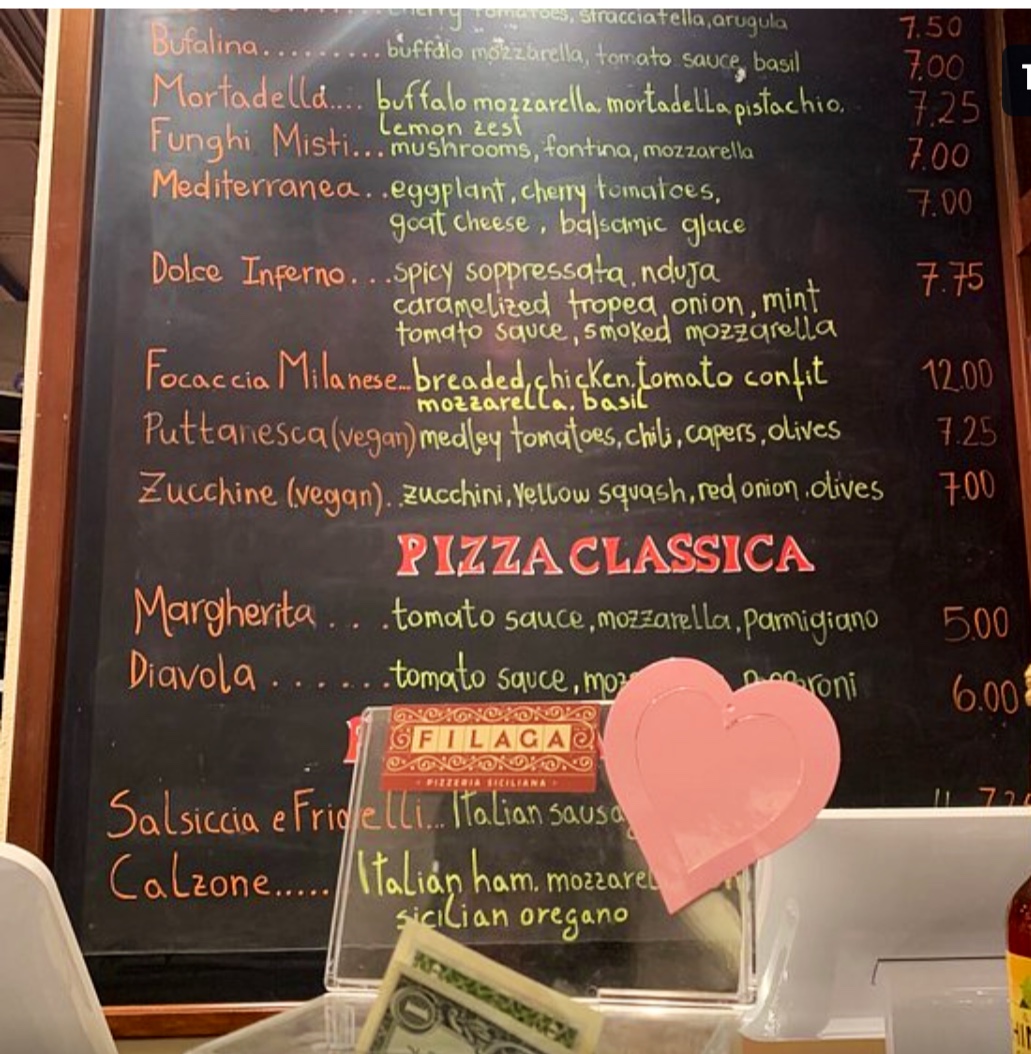 cherry tomatoes, stracciatella, arugula 7.50
Bufalina......... buffalo mozzarella, tomato sauce, basil 7.00
Mortadella.... buffalo mozzarella, mortadella, pistachio, 7.25
lemon zest
Funghi Misti... mushrooms, fontina, mozzarella 7.00
Mediterranea.. eggplant, cherry tomatoes, 7.00
goat cheese, balsamic glace
Dolce Inferno... spicy soppressata, nduja 7.75
caramelized tropea onion, mint
tomato sauce, smoked mozzarella
Focaccia Milanese... breaded chicken, tomato confit 12.00
mozzarella, basil
Puttanesca (vegan) medley tomatoes, chili, capers, olives 7.25
Zucchine (vegan).. zucchini, yellow squash, red onion, olives 7.00
PIZZA CLASSICA
Margherita... tomato sauce, mozzarella, Parmigiano 5.00
Diavola...... tomato sauce, 6.00
FILAGA
PIZZERIA SICILIANA
Salsiccia e Italian
Calzone..... Italian ham,
sicilian oregano
1